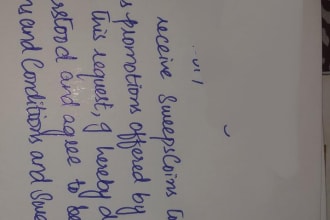 receive SweepsCoins
s promotions offered by
this request, I hereby d
rstood and agree to be
ns and Conditions and Swe